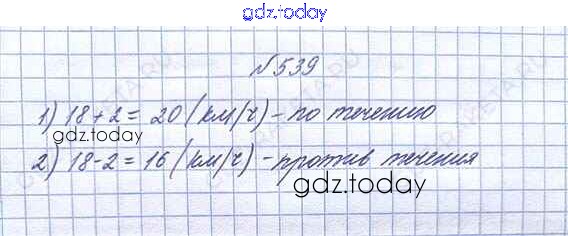 gdz.today
№539
1) 18+2 = 20 (км/ч) - по течению
gdz.today
2) 18-2 = 16 (км/ч) - против течения
gdz.today